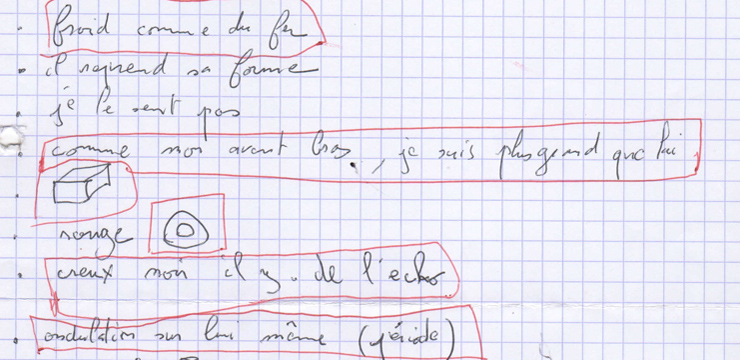 froid comme du fer
il reprend sa forme
je le sent pas
comme mon avant bras, je suis plus grand que lui
rouge
creux mon il y. de l'echo
ondulation sur lui même (période)